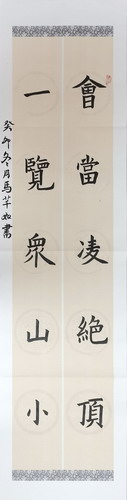 會當凌絕頂
一覽眾山小
癸卯冬月馬芊如書